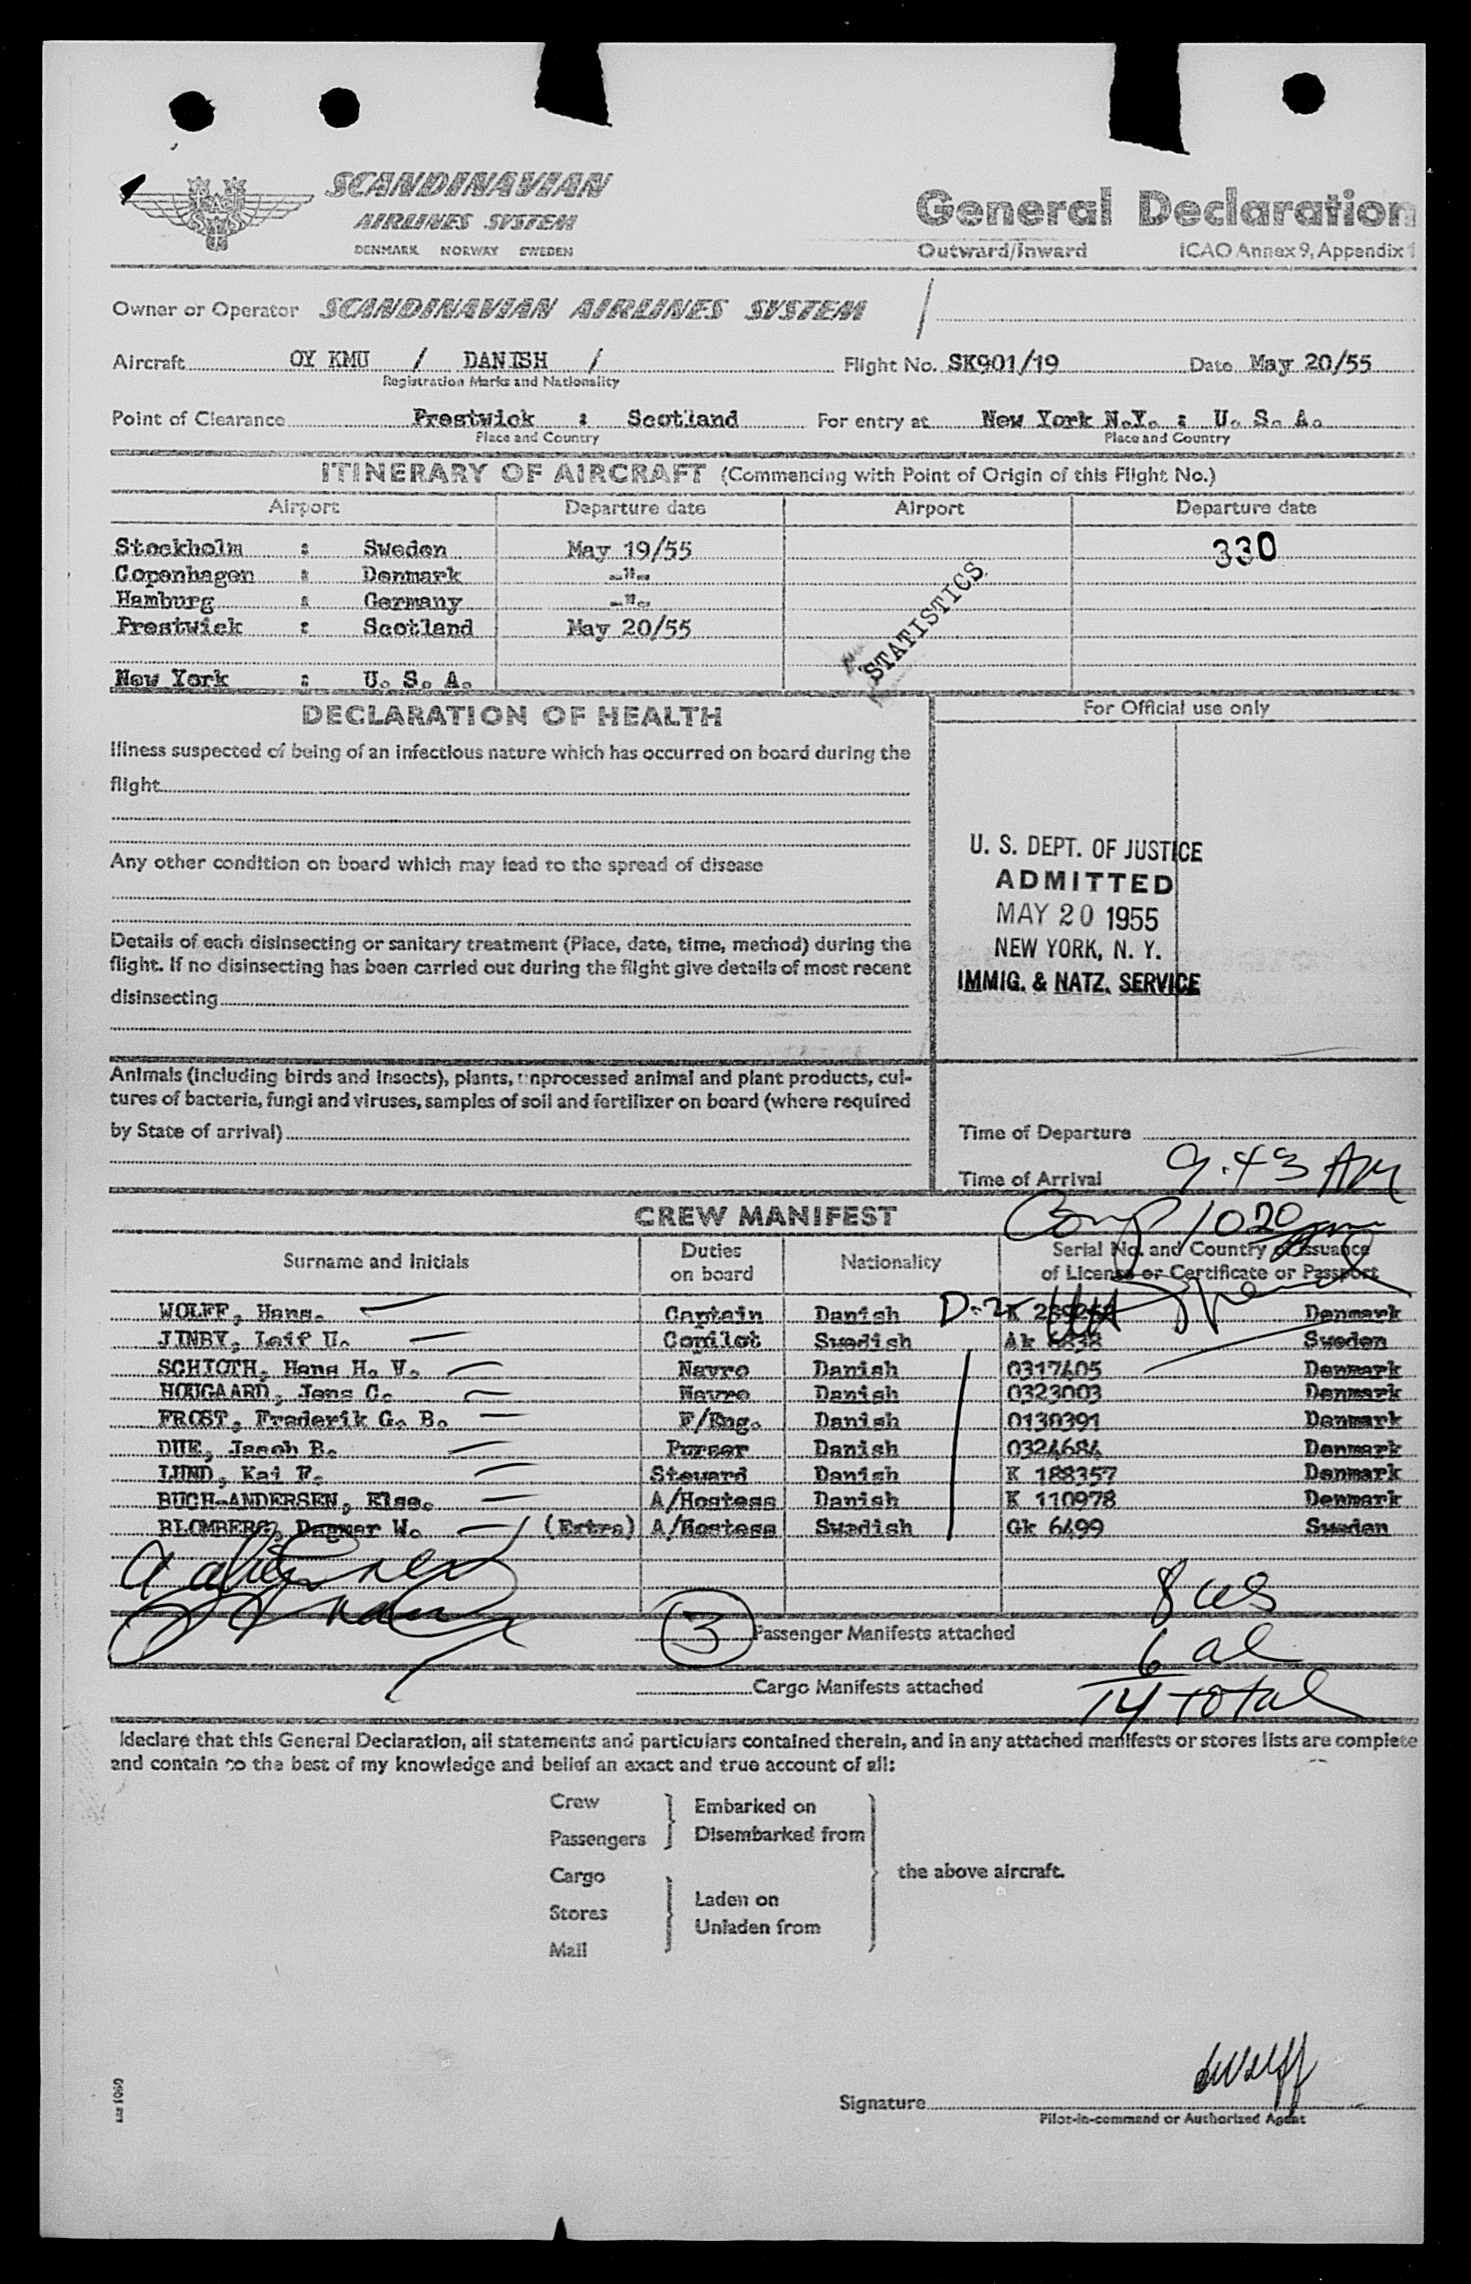 SCANDINAVIAN
AIRLINES SYSTEM
DENMARK NORWAY SWEDEN
General Declaration
Outward/Inward ICAO Annex 9, Appendix 1
Owner or Operator SCANDINAVIAN AIRLINES SYSTEM /
Aircraft OY KMU / DANISH / Flight No. SK901/19 Date May 20/55
Registration Marks and Nationality
Point of Clearance Prestwick : Scotland For entry at New York N.Y. : U. S. A.
Place and Country Place and Country
ITINERARY OF AIRCRAFT (Commencing with Point of Origin of this Flight No.)
Airport Departure date Airport Departure date
Stockholm : Sweden May 19/55 330
Copenhagen : Denmark -"-
Hamburg : Germany -"-
Prestwick : Scotland May 20/55
STATISTICS
New York : U. S. A.
DECLARATION OF HEALTH
For Official use only
Illness suspected of being of an infectious nature which has occurred on board during the
flight
Any other condition on board which may lead to the spread of disease
Details of each disinsecting or sanitary treatment (Place, date, time, method) during the
flight. If no disinsecting has been carried out during the flight give details of most recent
disinsecting
U. S. DEPT. OF JUSTICE
ADMITTED
MAY 20 1955
NEW YORK, N. Y.
IMMIG. & NATZ. SERVICE
Animals (including birds and insects), plants, unprocessed animal and plant products, cul-
tures of bacteria, fungi and viruses, samples of soil and fertilizer on board (where required
by State of arrival)
Time of Departure
Time of Arrival 9.43 AM
CREW MANIFEST
Comp 1020
Surname and Initials Duties on board Nationality Serial No. and Country of Issuance
of License or Certificate or Passport
WOLFF, Hans. Captain Danish D-2 K Denmark
JINBY, Leif U. Copilot Swedish Ak 8838 Sweden
SCHIOTH, Hans H. V. Navro Danish 0317405 Denmark
HOUGAARD, Jens C. Navro Danish 0323003 Denmark
FROST, Frederik G. B. F/Eng. Danish 0130391 Denmark
DUE, Jacob B. Purser Danish 0324684 Denmark
LUND, Kai F. Steward Danish K 188357 Denmark
BUCH-ANDERSEN, Else. A/Hostess Danish K 110978 Denmark
BLOMBERG, Dagmar W. (Extra) A/Hostess Swedish Gk 6499 Sweden
8 ucs
3 Passenger Manifests attached
6 al
Cargo Manifests attached
14 total
I declare that this General Declaration, all statements and particulars contained therein, and in any attached manifests or stores lists are complete
and contain to the best of my knowledge and belief an exact and true account of all:
Crew
Passengers
Embarked on
Disembarked from
Cargo
Stores
Mail
Laden on
Unladen from
the above aircraft.
Signature HWolff
Pilot-in-command or Authorized Agent